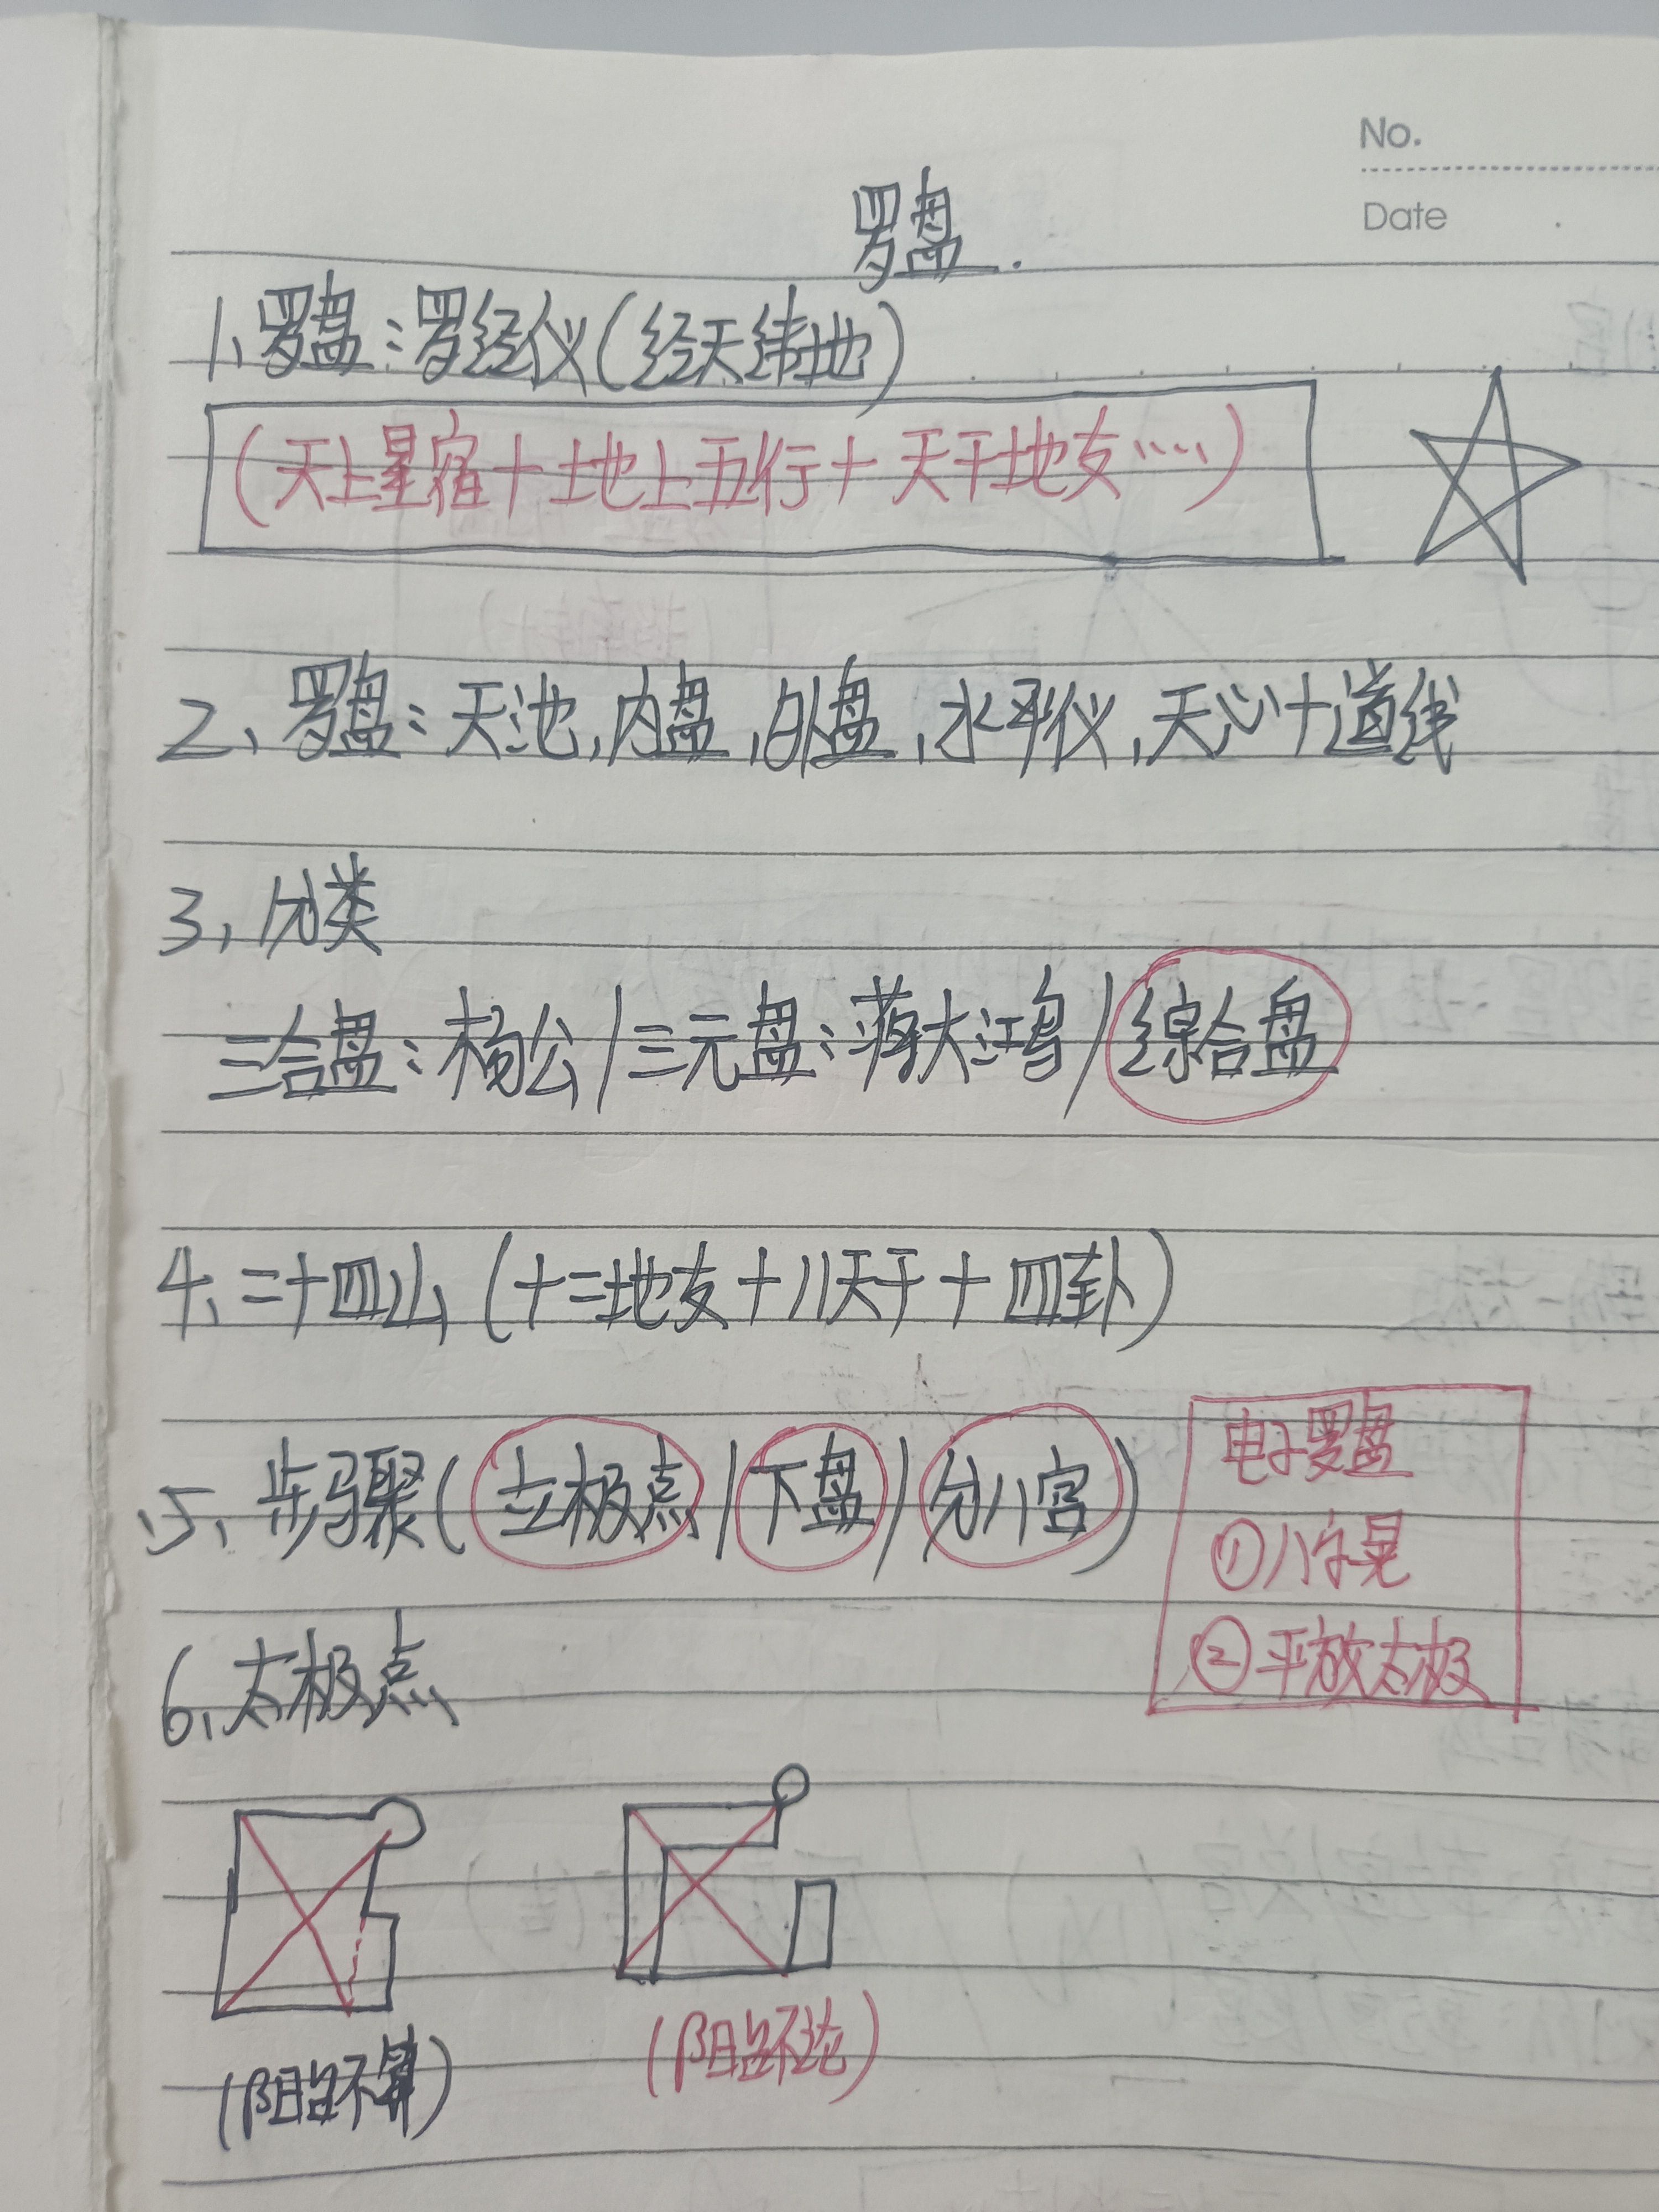 No.
Date
罗盘.
1、罗盘:罗经仪(经天纬地)
(天上星宿+土地上五行+天干地支……)
2、罗盘:天池,内盘,外盘,水平仪,天心十道线
3、分类
三合盘:杨公/三元盘:蒋大鸿/综合盘
4、二十四山(十二地支+八天干+四卦)
5、步骤(立极点/下盘/分八宫)
电子罗盘
①八字晃
②平放太极
6、太极点
(阳台不算)
(阳台不论)